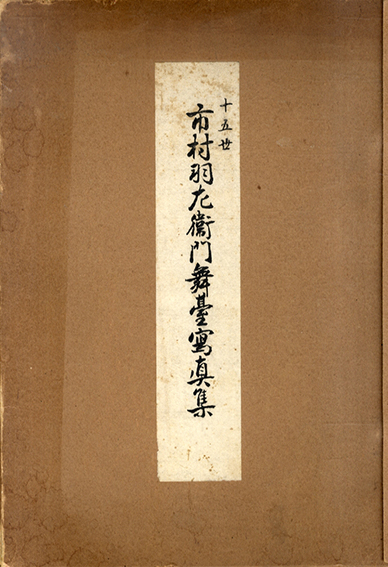 十五世
市村羽左衞門舞臺寫真集